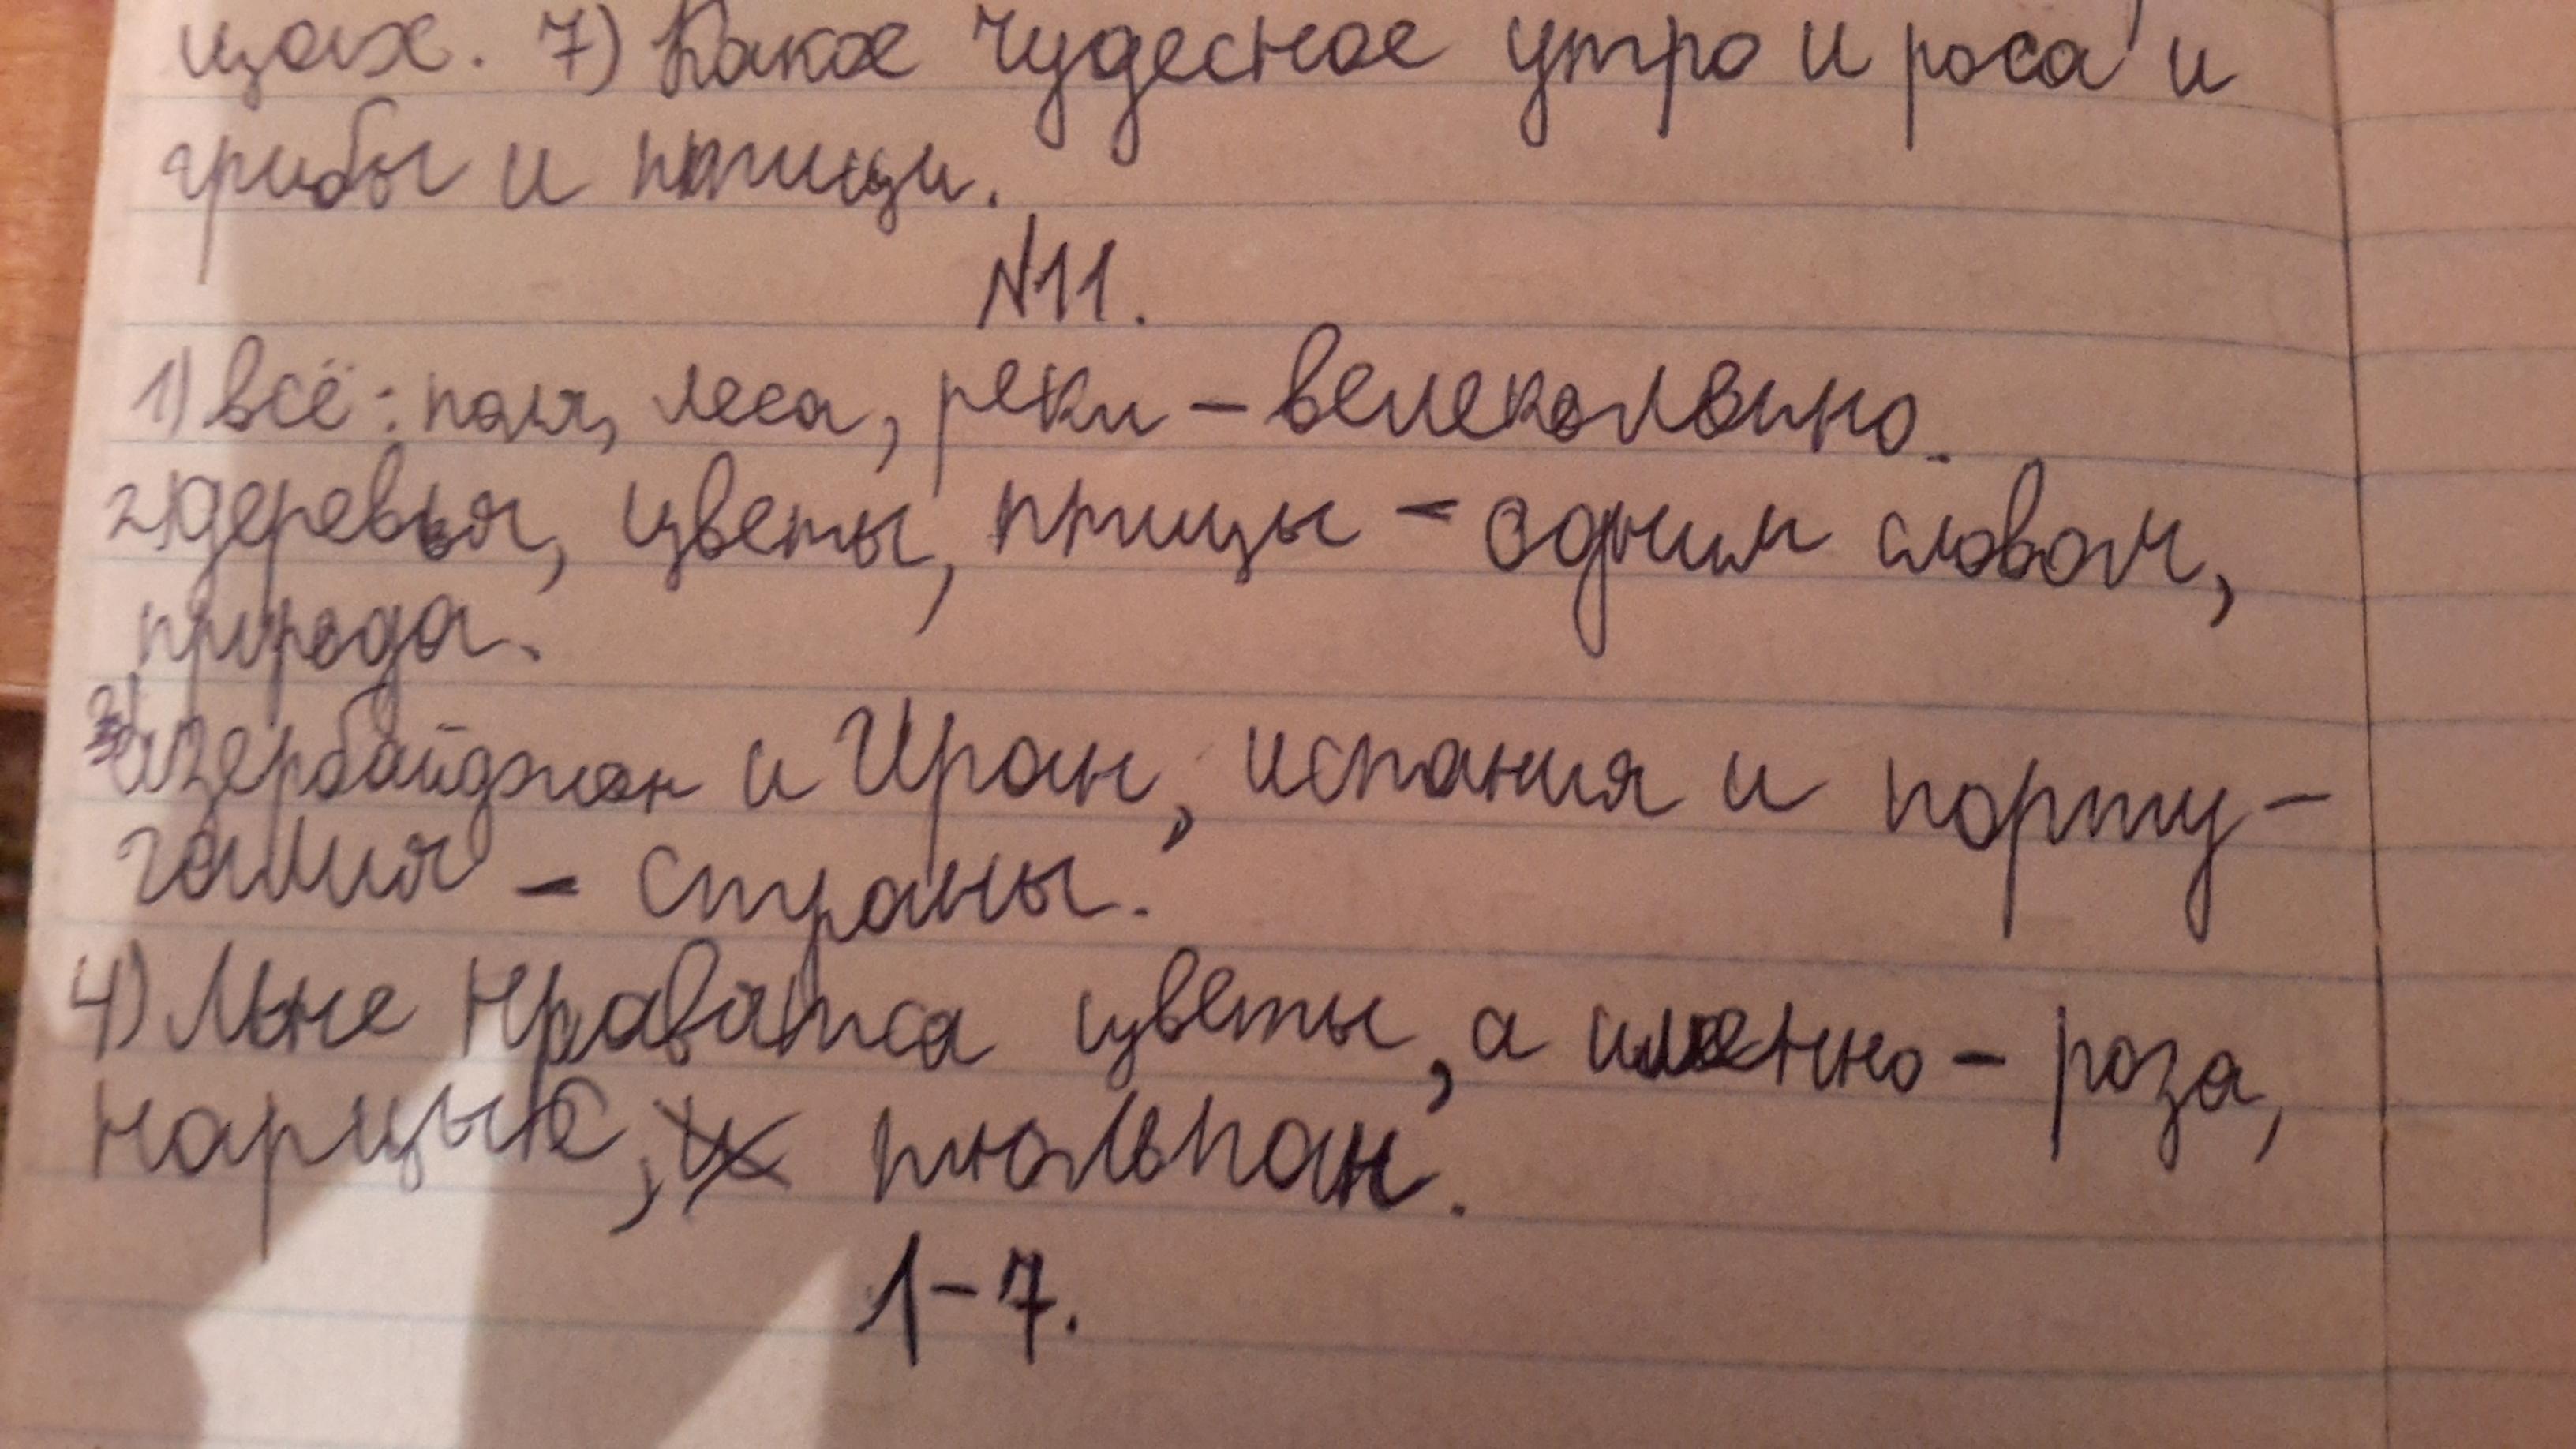 цах. 7) Какое чудесное утро и роса и
грибы и птици.
N11.
1) всё: поля, леса, реки – велеколепно.
2) деревья, цветы, птицы – одним словом,
природа.
3) Азербайджан и Иран, испания и порту-
галия – страны.
4) Мне нравятса цветы, а именно – роза,
нарцыс, тюльпан.
1-7.